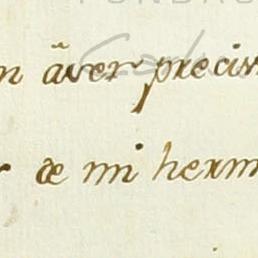 FUNDAC
n ãver preciv
de mi herm